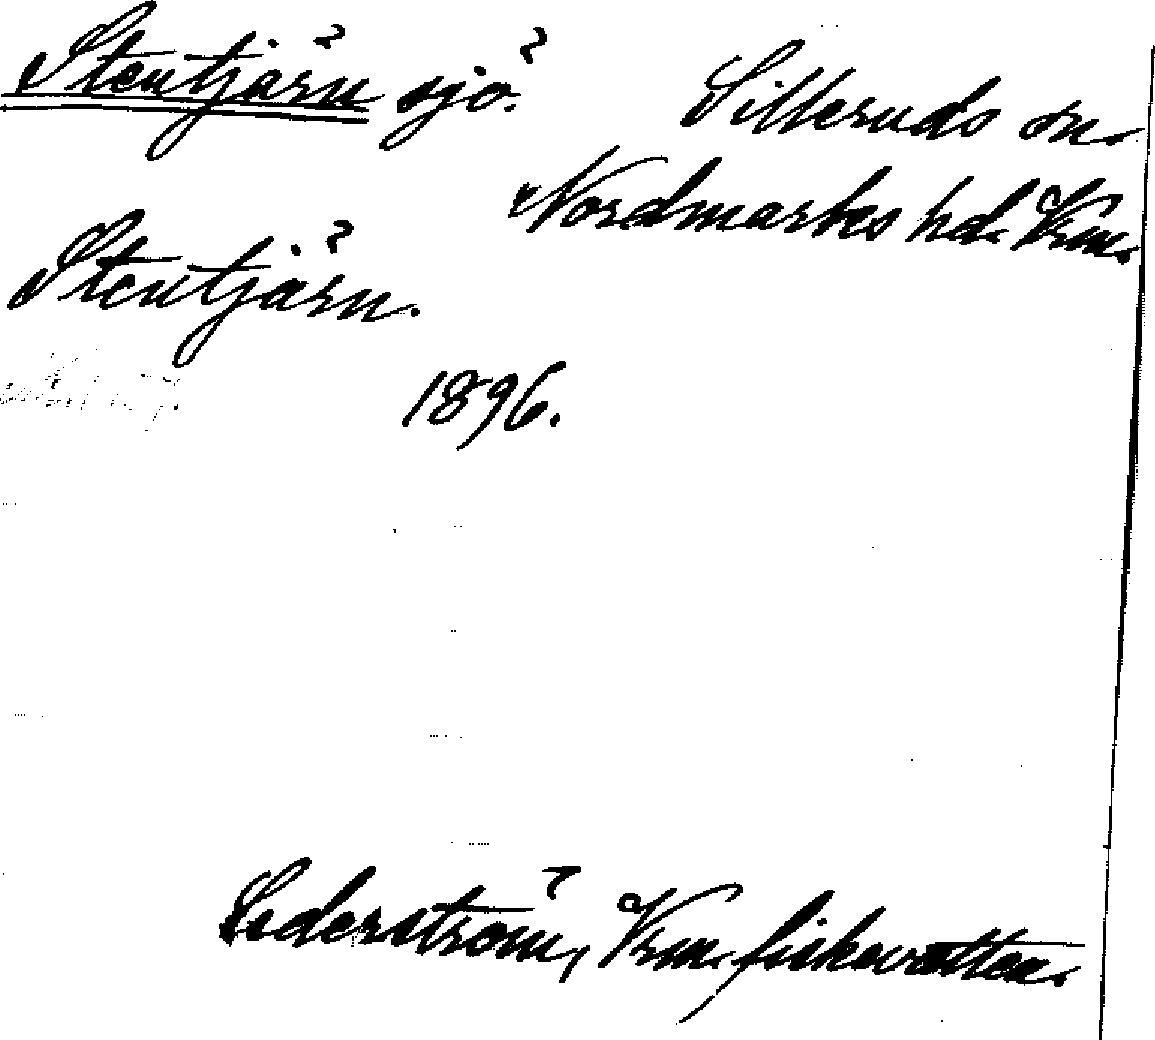 Stentjärn sjö.
Silleruds sn.
Nordmarks hd. Vrm.
Stentjärn.
1896.
Cederström, Vrm. fiskevatten.